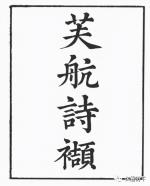 芙航詩襭